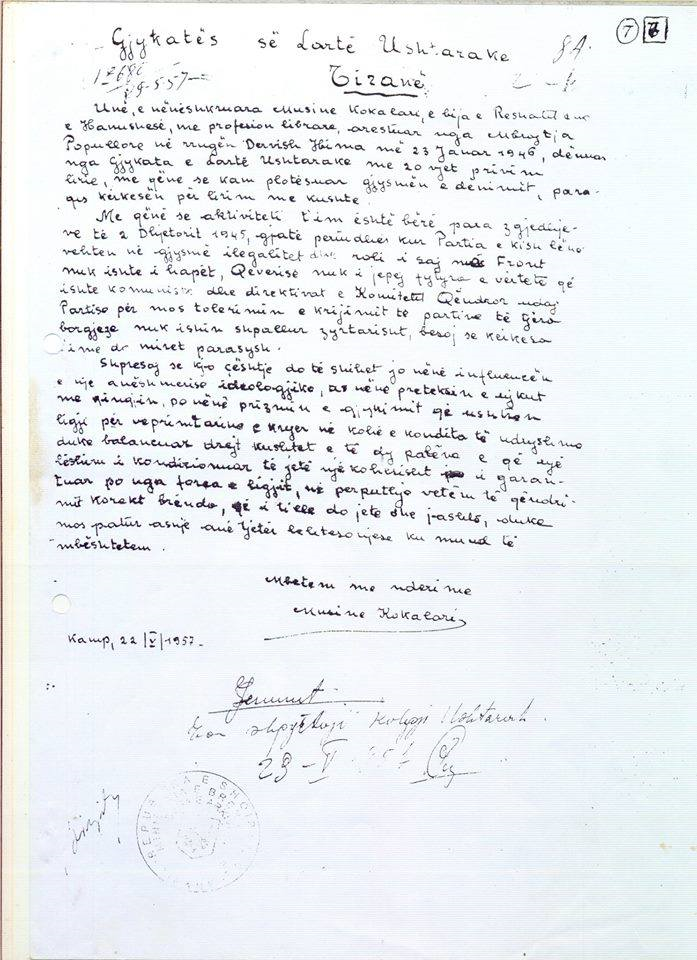 7 7
Gjykatës së Lartë Ushtarake 84.
Tiranë
Unë, e nënëshkruara Musine Kokalari, e bija e Reshatit dhe
e Hanushesë, me profesion librare, arestuar nga Mbrojtja
Popullore në rrugën Dervish Hima më 23 Janar 1946, dënuar
nga Gjykata e Lartë Ushtarake me 20 vjet privim
lirie, me qëne se kam plotësuar gjysmën e dënimit, para-
qes kërkesën për lirim me kushte.
Me qënë se aktiviteti t'im është bërë para zgjedhje-
ve të 2 Dhjetorit 1945, gjatë periudhës kur Partia e kish lënë
vehten në gjysmë ilegalitet dhe roli i saj në Front
nuk ishte i hapët, Qeverisë nuk i jepej fytyra e vërtetë që
ishte komuniste dhe direktivat e Komitetit Qëndror ndaj
Partisë për mos tolerimin e krijimit të partive të tjera
borgjeze nuk ishin shpallur zyrtarisht, besoj se kërkesa
ime do miret parasysh.
Shpresoj se kjo çështje do të shihet jo nënë influencën
e nje anëshmërise ideologjike, as nënë preteksin e ujkut
me qingjin, po nënë prizmin e gjykimit që ushtron
ligji për veprimtarine e kryer në kohë e kondita të ndryshme
duke balancuar drejt kushtet e të dy palëve e që një
lëshim i kondicionuar të jetë një kohërisht i garan-
tuar po nga forca e ligjit, në përputhje vetëm të qëndri-
mit korekt brënda, që i tillë do jetë dhe jashtë, duke
mos patur asnje anë tjetër lehtësonjëse ku mund të
mbështetem.
Mbetem me nderime
Musine Kokalari
Kamp, 22/V/1957.
Kolegji Ushtarak.
23-V 1957